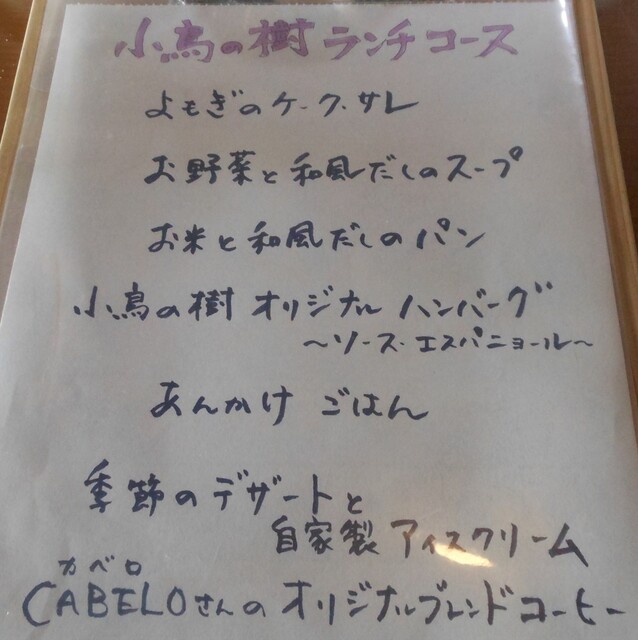 小鳥の樹 ランチコース
よもぎのケーク・サレ
お野菜と和風だしのスープ
お米と和風だしのパン
小鳥の樹 オリジナル ハンバーグ
〜ソース・エスパニョール〜
あんかけ ごはん
季節のデザートと
自家製 アイスクリーム
カベロ
CABELOさんの オリジナルブレンドコーヒー